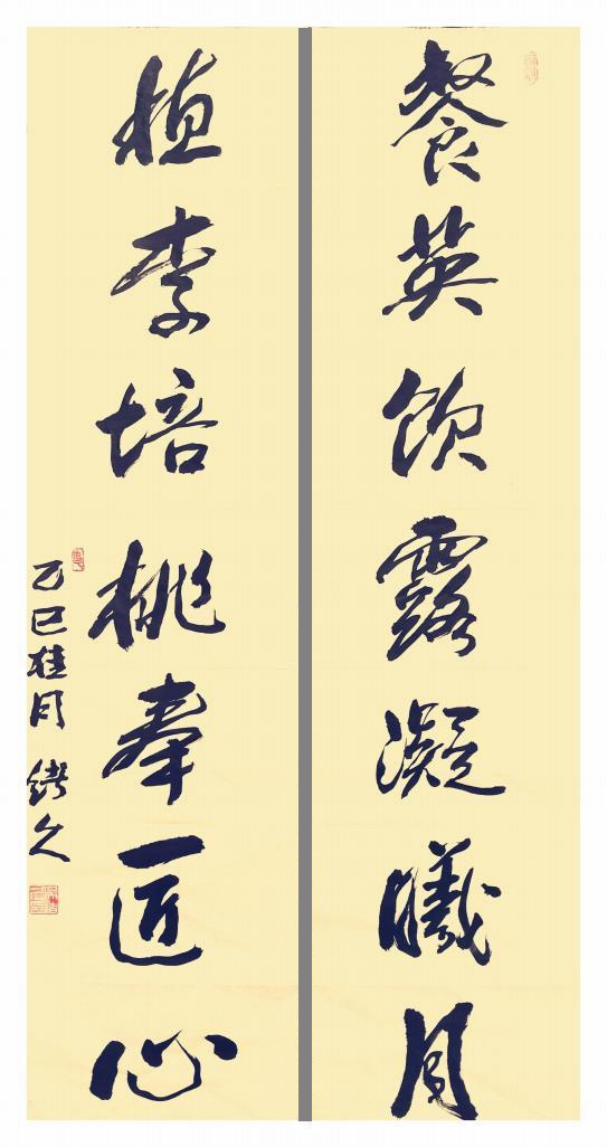 餐英饮露凝曦月
植李培桃奉匠心
乙巳桂月 绪久